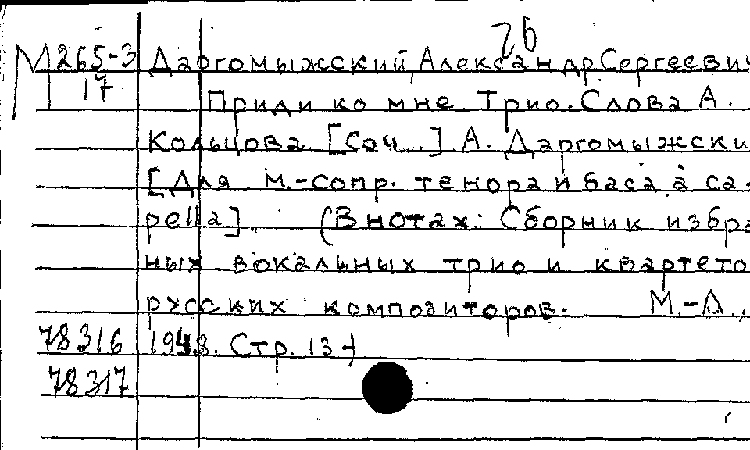 26
М 265-3 Даргомыжский, Александр Сергеевич
17 Приди ко мне. Трио. Слова А.
Кольцова [Соч...] А. Даргомыжски
[Для м.-сопр. тенора и баса a ca-
pella]. (В нотах: Сборник избра
ных вокальных трио и квартето
русских композиторов. М.-Л.,
78316 1948. Стр. 13-)
78317